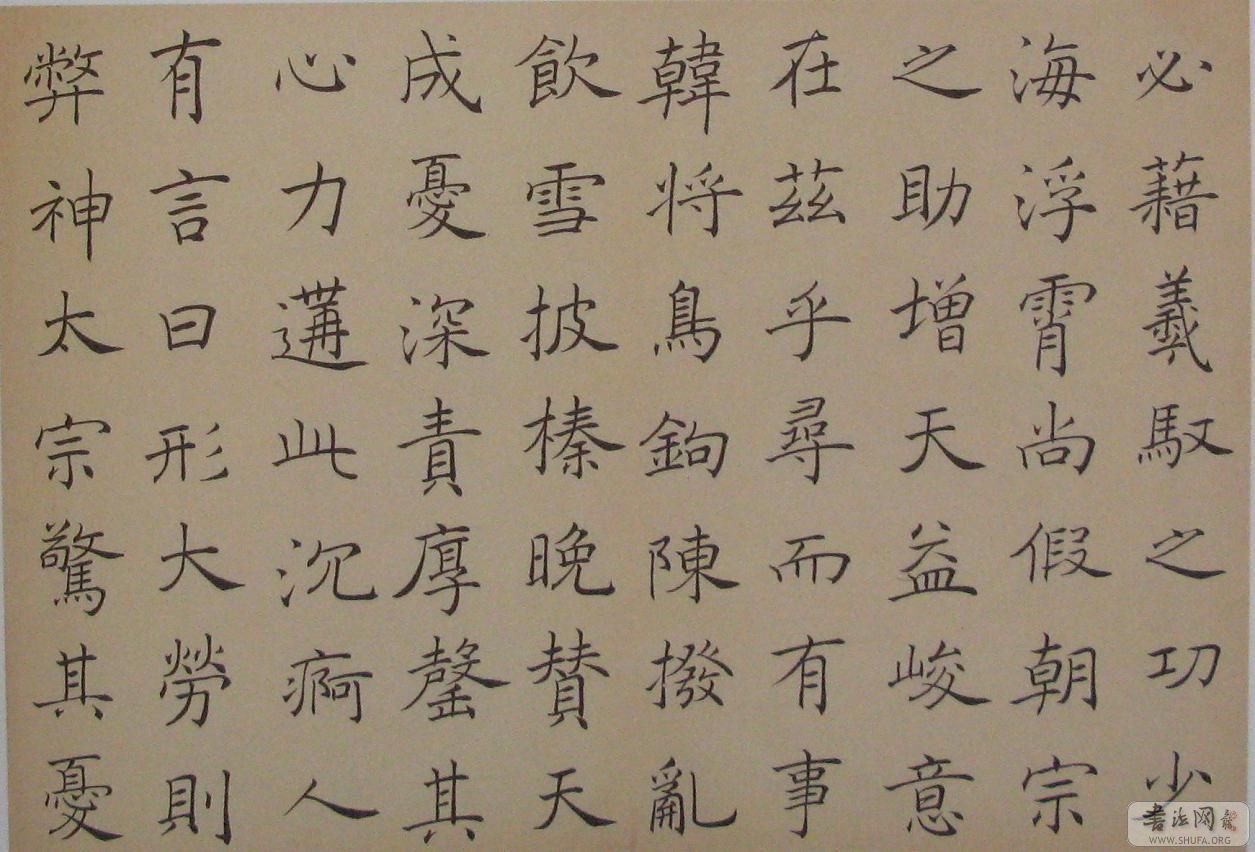 必藉羲馭之功少
海浮霄尚假朝宗
之助增天益峻意
在茲乎尋而有事
韓将鳥鉤陳撥亂
飲雪披榛晚賛天
成憂深責厚罄其
心力遘此沉痾人
有言曰形大勞則
弊神太宗驚其憂
書法网
WWW.SHUFA.ORG